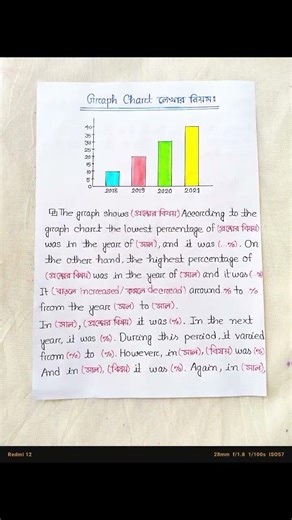 Graph Chart লেখার নিয়মঃ
40
35
30
25
20
15
10
5
0
2018 2019 2020 2021
The graph shows (প্রশ্নের বিষয়) According to the
graph chart the lowest percentage of (প্রশ্নের বিষয়)
was in the year of (সাল), and it was (..%). On
the other hand, the highest percentage of
(প্রশ্নের বিষয়) was in the year of (সাল) and it was (%)
It (বাড়লে increased/কমলে decreased) around % to %
from the year (সাল) to (সাল).
In (সাল), (প্রশ্নের বিষয়) it was (%). In the next
year, it was (%). During this period, it varied
from (%) to (%). However, in (সাল), (বিষয়) was (%)
And in (সাল), (বিষয়) it was (%). Again, in (সাল),
Redmi 12
28mm f/1.8 1/100s ISO57